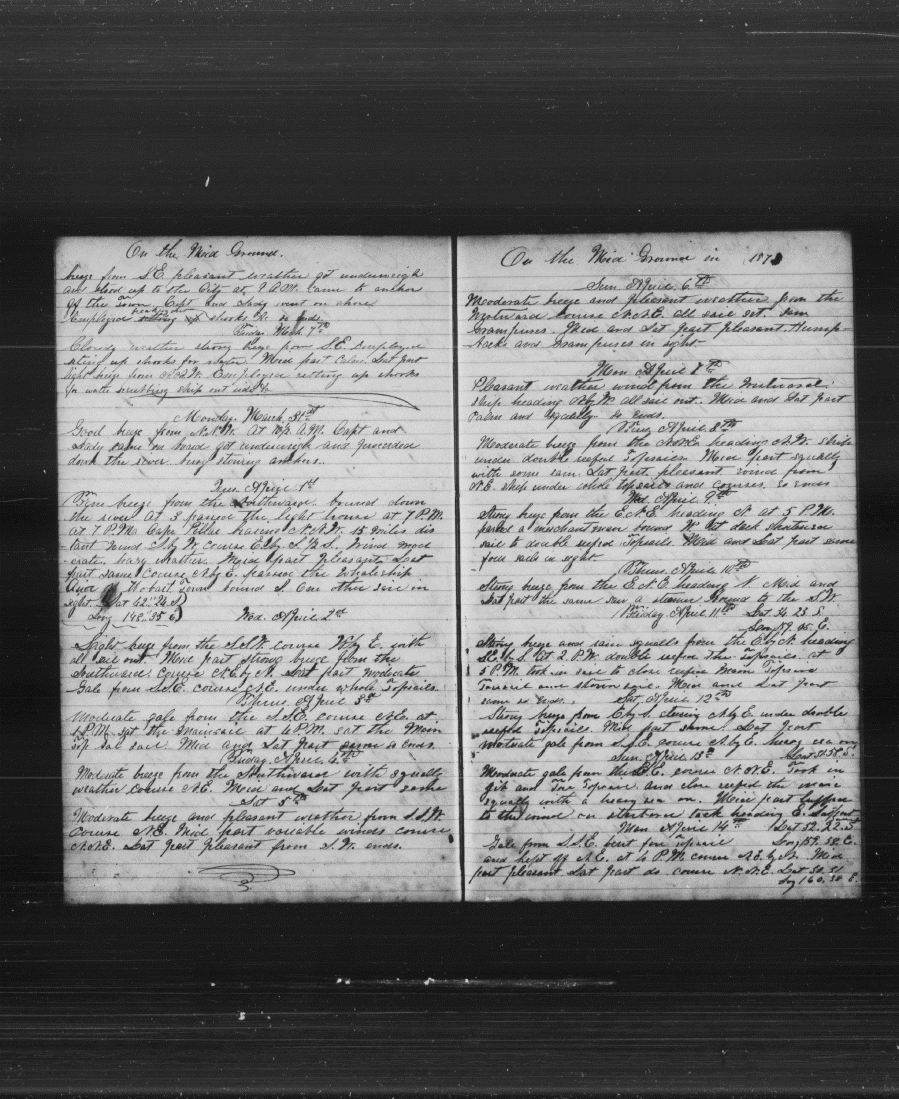 On the Mid Ground.
breeze from S.E. pleasant weather got underweigh
and stood up to the City at 9 A.M. Came to anchor
off the Town. Capt and Lady went on shore
Employed setting up shooks &c so ends
Friday Mch. 7th
Cloudy weather strong breeze from S.E. Employed
setting up shooks for water. Mid part Calm, Lat part
light breeze from N.W. Employed setting up shooks
for water scrubbing ship out side &c
Monday, March 31st
Good breeze from N.W. At 10 A.M. Capt and
Lady came on board got underweigh and proceeded
down the river. busy stowing anchors..
Tues. April 1st
Fine breeze from the Southward. bound down
the river at 3 passed the light house at 7 P.M.
at 7 P.M. Cape Pillar bearing N.N.W. 15 miles dis
tant wind S by W. course E by S 1/2 S. wind mod
erate, hazy weather. Mid part Pleasant. Lat
part same course N by E. passed the Whaleship
of Hobart Town bound S. One other sail in
sight. Lat 42.24 S
Long 148.35 E
Wed. April 2nd
Light breeze from the S.S.W. course N by E. with
all sail out. Mid part strong breeze from the
Southward. course N.E. by N. Lat part moderate
Gale from S.S.E. course N.E. under whole Topsails.
Thurs. April 3rd
Moderate gale from the S.S.E. course N.E. at
1 P.M. set the mainsail at 4 P.M. set the Main
Top Gal sail. Mid and Lat Part same so Ends.
Friday April 4th
Moderate breeze from the Southward with squally
weather course N.E. Mid and Lat part same
Sat 5th
Moderate breeze and pleasant weather from S.S.W.
course N.E. Mid part variable winds course
N.N.E. Lat part pleasant from S.W. ends.
On the Mid Ground in 1873
Sun April 6th
Moderate breeze and pleasant weather from the
Westward course N.N.E. all sail set. saw
Grampuses. Mid and Lat part pleasant. Hump-
backs and Grampuses in sight.
Mon April 7th
Pleasant weather wind from the Westward
ship heading N by W. all sail out. Mid and Lat part
Calm and squally so ends.
Tues April 8th
Moderate breeze from the N.N.E. heading N.W. ship
under double reefed Topsails. Mid part squally
with some rain. Lat part pleasant wind from
N.E. ship under whole topsails and courses. so ends
Wed April 9th
Strong breeze from the E.N.E. heading N. at 5 P.M.
passed a merchantman bound W. at dark shortened
sail to double reefed Topsails. Mid and Lat part same
four sails in sight.
Thurs. April 10th
Strong breeze from the E.N.E. heading N. Mid and
Lat part the same saw a steamer bound to the S.W.
Friday April 11th Lat. 34 23 S
Long 159.05 E.
Strong breeze and rain squalls from the E by N. heading
at 2 P.M. double reefed the Topsails at
5 P.M. took in sail to close reefed Main Topsail
Foresail and storm sail. Mid and Lat part
same so Ends. Sat. April 12th
Strong breeze from E by S. steering N by E. under double
reefed topsails. Mid part same. Lat part
moderate gale from S.S.E. course N by E. heavy sea on
Sun. April 13th
Moderate gale from the S.E. course N.N.E. Took in
jib and Fore Topsail and close reefed the main
squally with a heavy sea on. Mid part luffed
to the wind on starbord tack heading E.
Mon April 14th Lat 32.22. S
Gale from S.S.E. first fore Topsail Long 159.58 E.
and kept off N.E. at 4 P.M. course N.E. by N. Mid
part pleasant Lat part do course N.N.E.
Long 160.38 E.